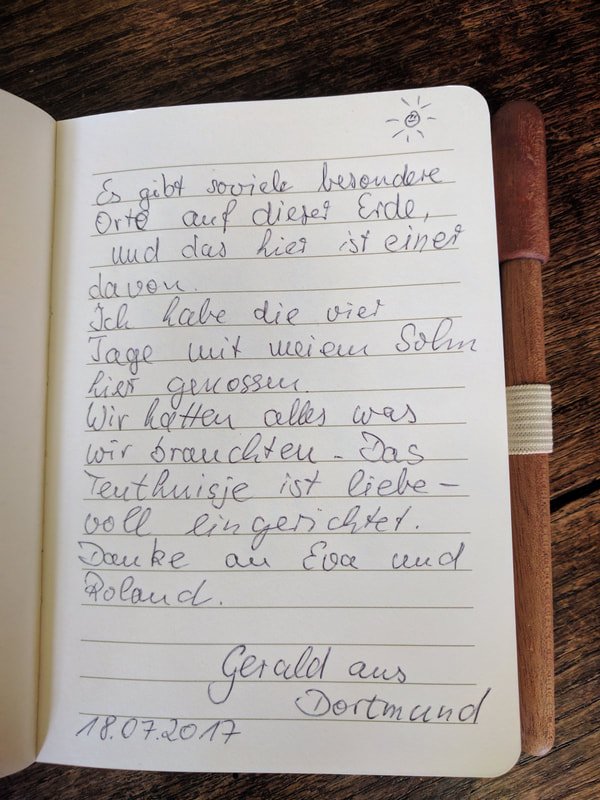 Es gibt soviele besondere
Orte auf dieser Erde,
und das hier ist einer
davon.
Ich habe die vier
Tage mit meiem Sohn
hier genossen.
Wir hatten alles was
wir brauchten - Das
Tenthuisje ist liebe-
voll eingerichtet.
Danke an Eva und
Roland.
Gerald aus
Dortmund
18.07.2017